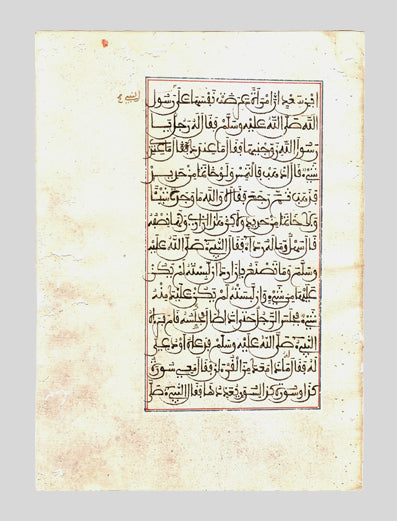 ابن سعد ان امراة عرضت نفسها على رسول
الله صلى الله عليه وسلم فقال له رجل يا
رسول الله زوجنيها فقال ما عندك فقال ما عندي
شيء قال اذهب فالتمس ولو خاتما من حديد
فذهب ثم رجع فقال لا والله ما وجدت شيئا
ولا خاتما من حديد ولكن هذا ازاري ولها نصفه
قال سهل وما له رداء فقال النبي صلى الله عليه
وسلم وما تصنع بازارك ان لبسته لم يكن
عليها منه شيء وان لبسته لم يكن عليك منه
شيء فجلس الرجل حتى اذا طال مجلسه قام فراه
النبي صلى الله عليه وسلم فدعاه او دعي
له فقال ماذا معك من القرءان فقال معي سورة
كذا وسورة كذا لسور يعددها فقال النبي صلى